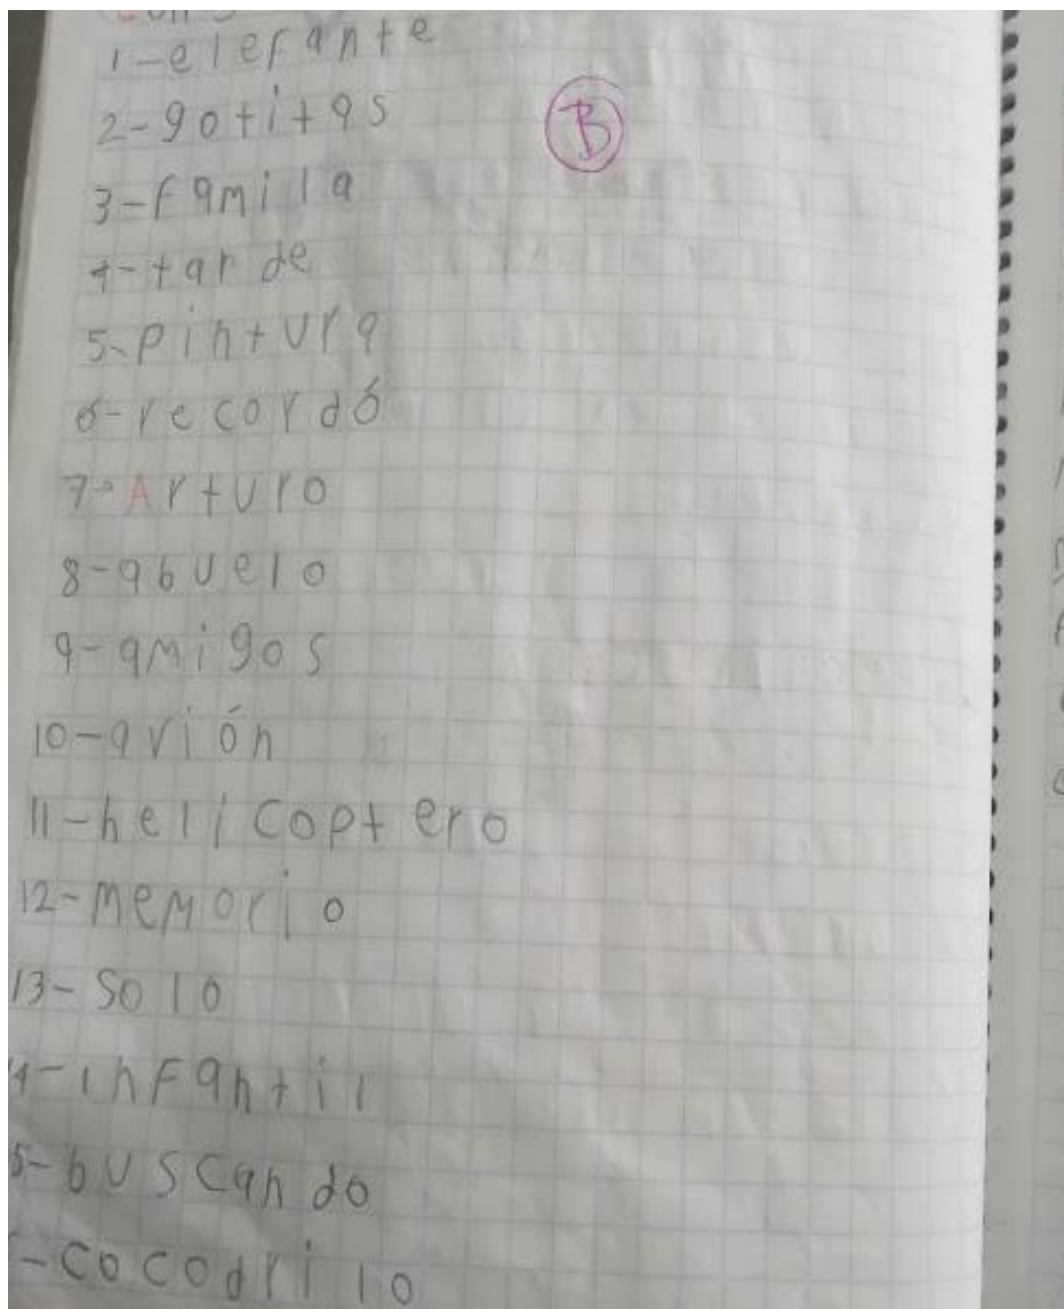 1-elefante
2-gotitas
B
3-familа
4-tarde
5-pintura
6-recordó
7-Arturo
8-abuelo
9-amigos
10-avión
11-helicoptero
12-memorio
13-solo
4-infantil
5-buscando
-cocodrilo